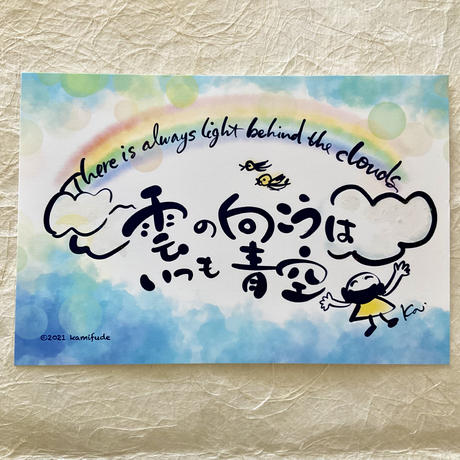 There is always light behind the clouds
雲の向こうは
いつも青空
Kai
©2021 kamifude